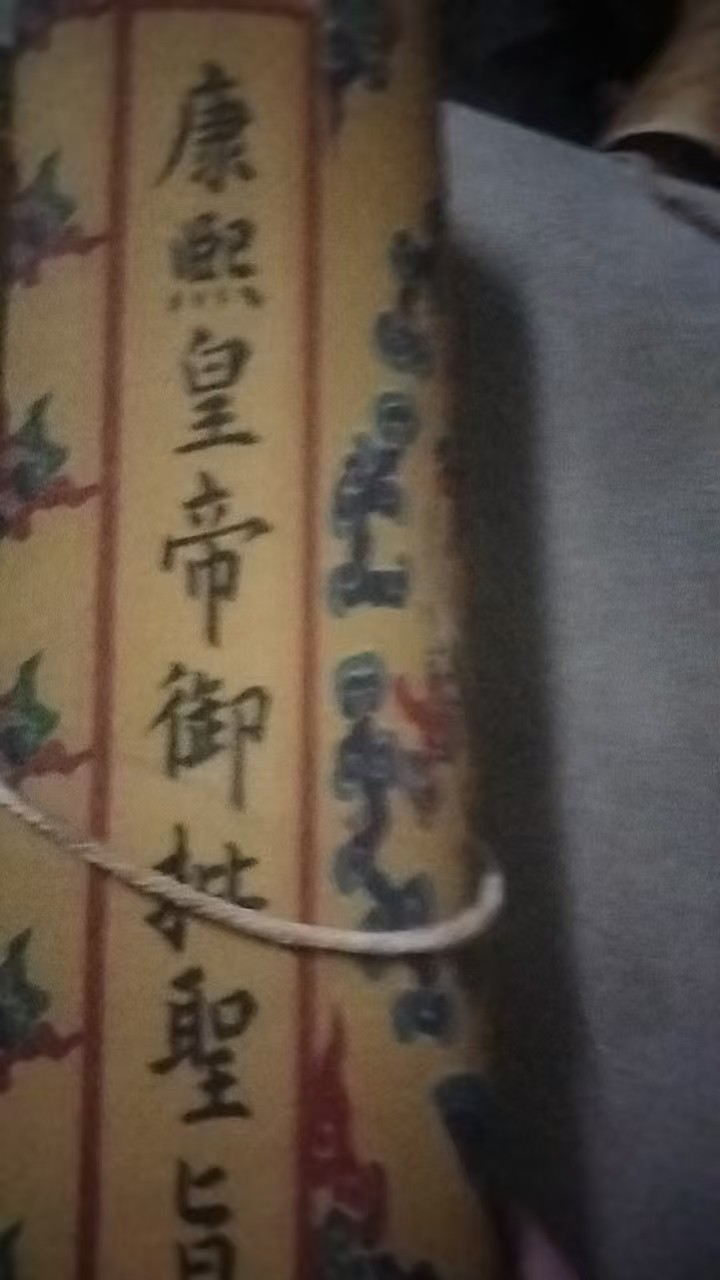 康熙皇帝御批聖旨